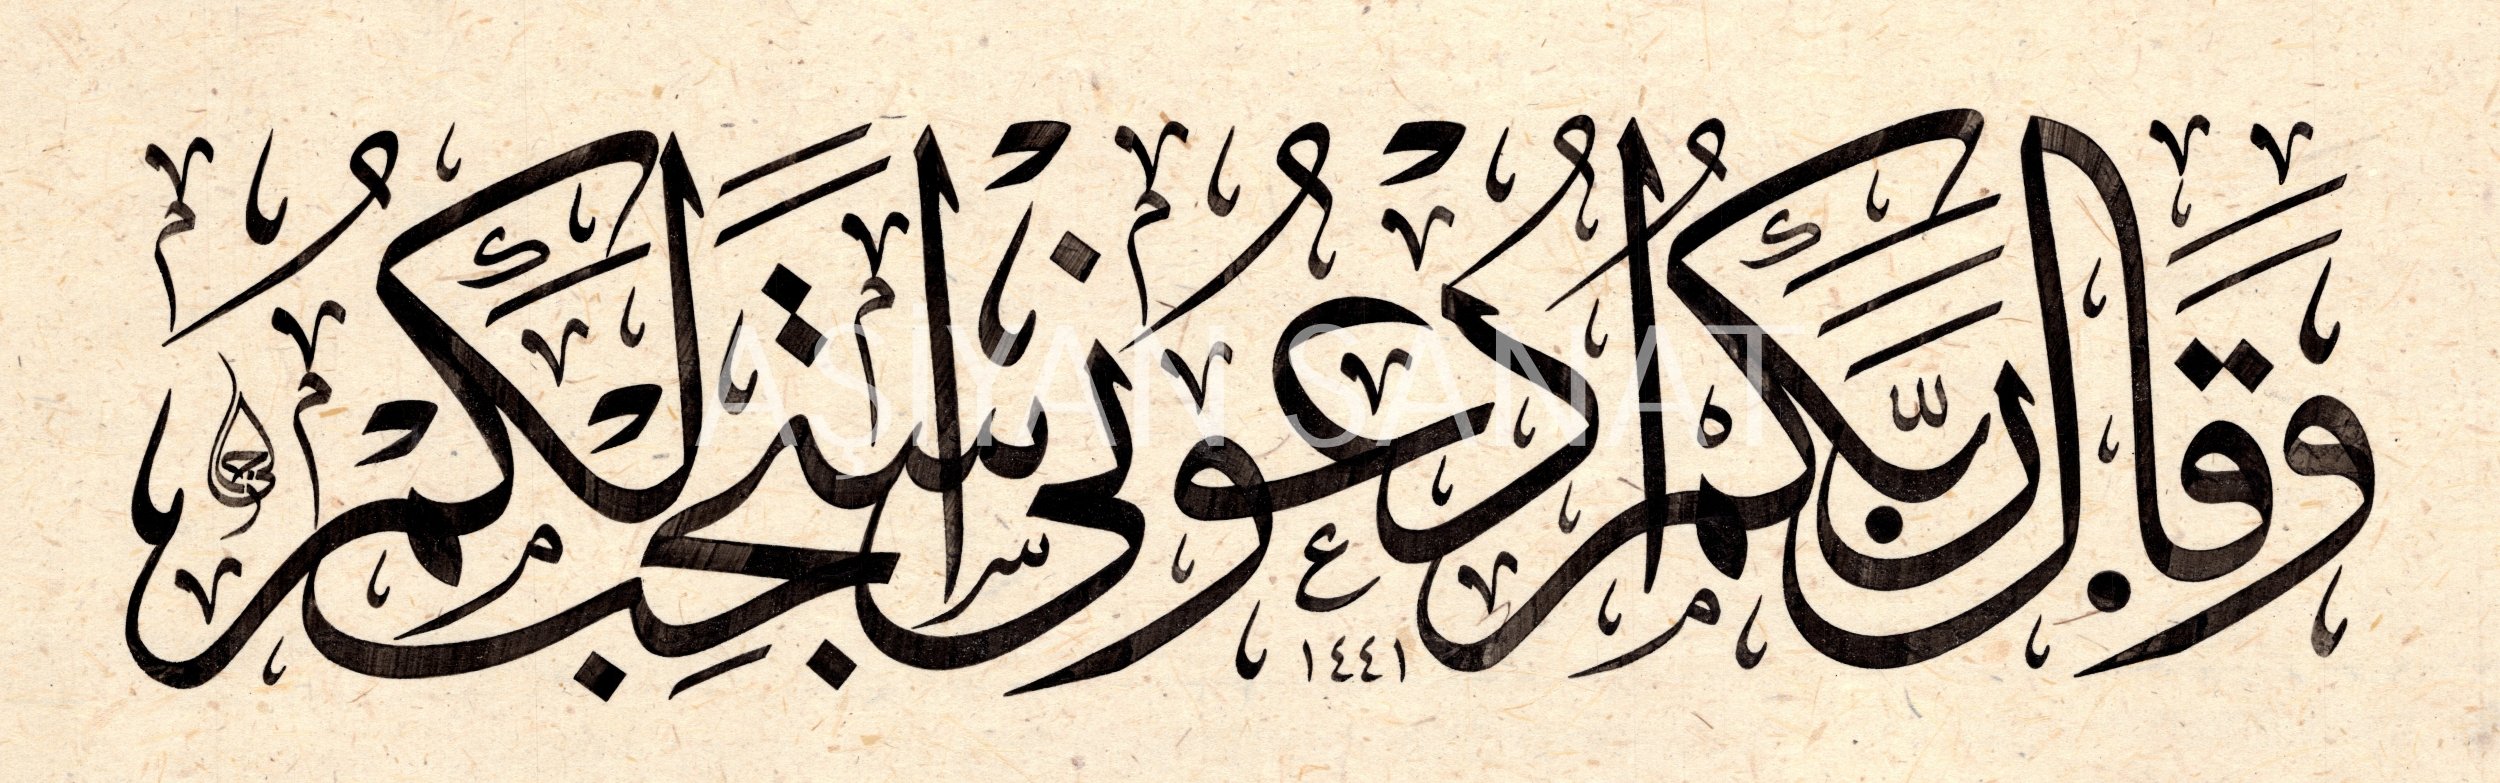 وَقَالَ رَبُّكُمُ ادْعُونِي أَسْتَجِبْ لَكُمْ
١٤٤١
AŞİYAN SANAT